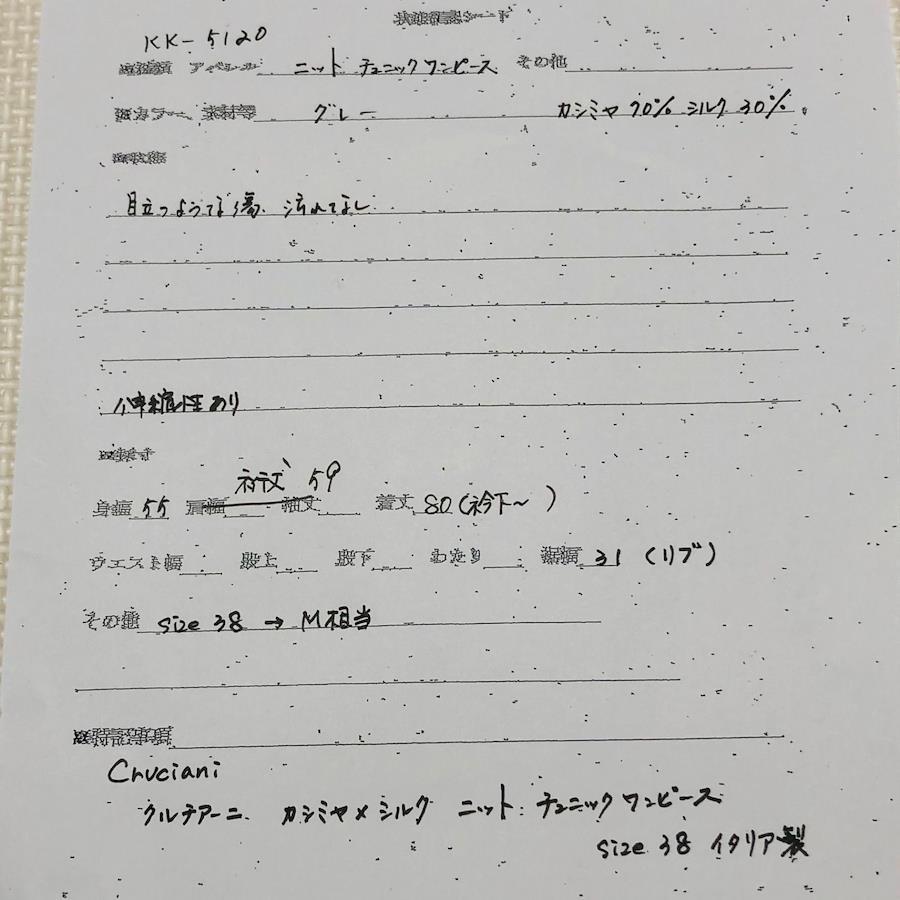 状態確認シート
KK-5120
アパレル ニット チュニックワンピース その他
カラー、素材等 グレー カシミヤ70% シルク30%。
状態
目立つような傷、汚れてなし
伸縮性あり
採寸
裄丈 59
身幅 55 肩幅 袖丈 着丈 80(衿下〜 )
ウエスト幅 股上 股下 わたり 裾幅 31 (リブ)
その他 size 38 → M相当
特記事項
Cruciani
クルチアーニ カシミヤ×シルク ニット チュニックワンピース
size 38 イタリア製